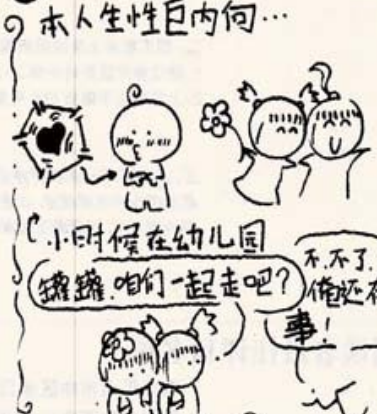 本人生性巨内向…
小时候在幼儿园
罐罐,咱们一起走吧?
不,不了,
俺还有
事!